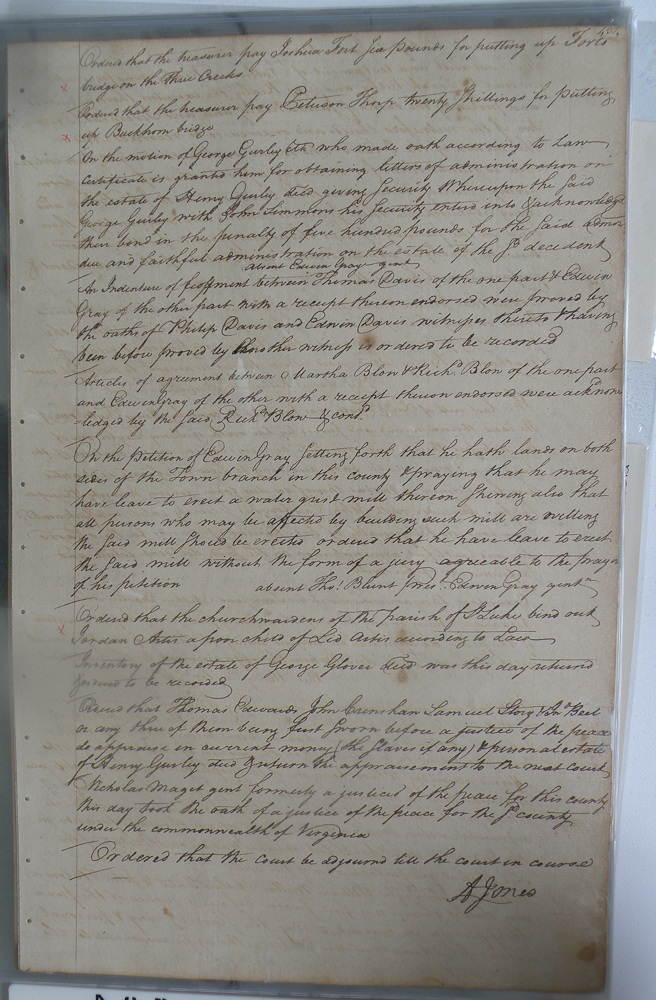 Ordered that the treasurer pay Joshua Fort Six Pounds for putting up Forts
bridge on the Three Creeks
Ordered that the treasurer pay Peterson Thorp twenty Shillings for putting
up Buckhorn bridge
On the motion of George Gurley who made oath according to Law
certificate is granted him for obtaining letters of administration on
the estate of Henry Gurley decd giving Security Whereupon the Said
George Gurley with John Simmons his Security enterd into & acknowledgd
their bond in the penalty of five hundred pounds for the Said admors
due and faithful administration on the estate of the sd decedent
absent Edwin Gray gent
An Indenture of feoffment between Thomas Davis of the one part & Edwin
Gray of the other part with a receipt thereon endorsed were proved by
the oaths of Philip Davis and Edwin Davis witnesses thereto & having
been before proved by another witness is ordered to be recorded
Articles of agreement between Martha Blow & Richd Blow of the one part
and Edwin Gray of the other with a receipt thereon endorsed were acknow
-ledged by the Said Richd Blow &
On the Petition of Edwin Gray Setting forth that he hath lands on both
sides of the Town branch in this county & praying that he may
have leave to erect a water grist mill thereon Shewing also that
all persons who may be affected by building such mill are willing
the Said mill Should be erected ordered that he have leave to erect
the Said mill without the form of a jury agreeable to the prayer
of his petition absent Thos Blunt prest Edwin Gray gentn
Ordered that the churchwardens of the parish of St Luke bind out
Jordan Artis a poor child of Lid Artis according to Law
Inventory of the estate of George Glover decd was this day returned
& ordered to be recorded
Ordered that Thomas Edwards John Crenshaw Samuel Story & Jno Beel
or any three of them being first Sworn before a justice of the peace
do appraise in current money (the Slaves if any) & personal estate
of Henry Gurley decd & return the appraisement to the next court
Nicholas Maget gent formerly a justice of the peace for this county
this day took the oath of a justice of the peace for the sd county
under the commonwealth of Virginia
Ordered that the court be adjournd till the court in course
A Jones